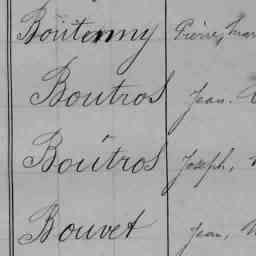 Boutenny Pierre, Mar
Boutros Jean.
Boutros Joseph,
Bouvet Jean,